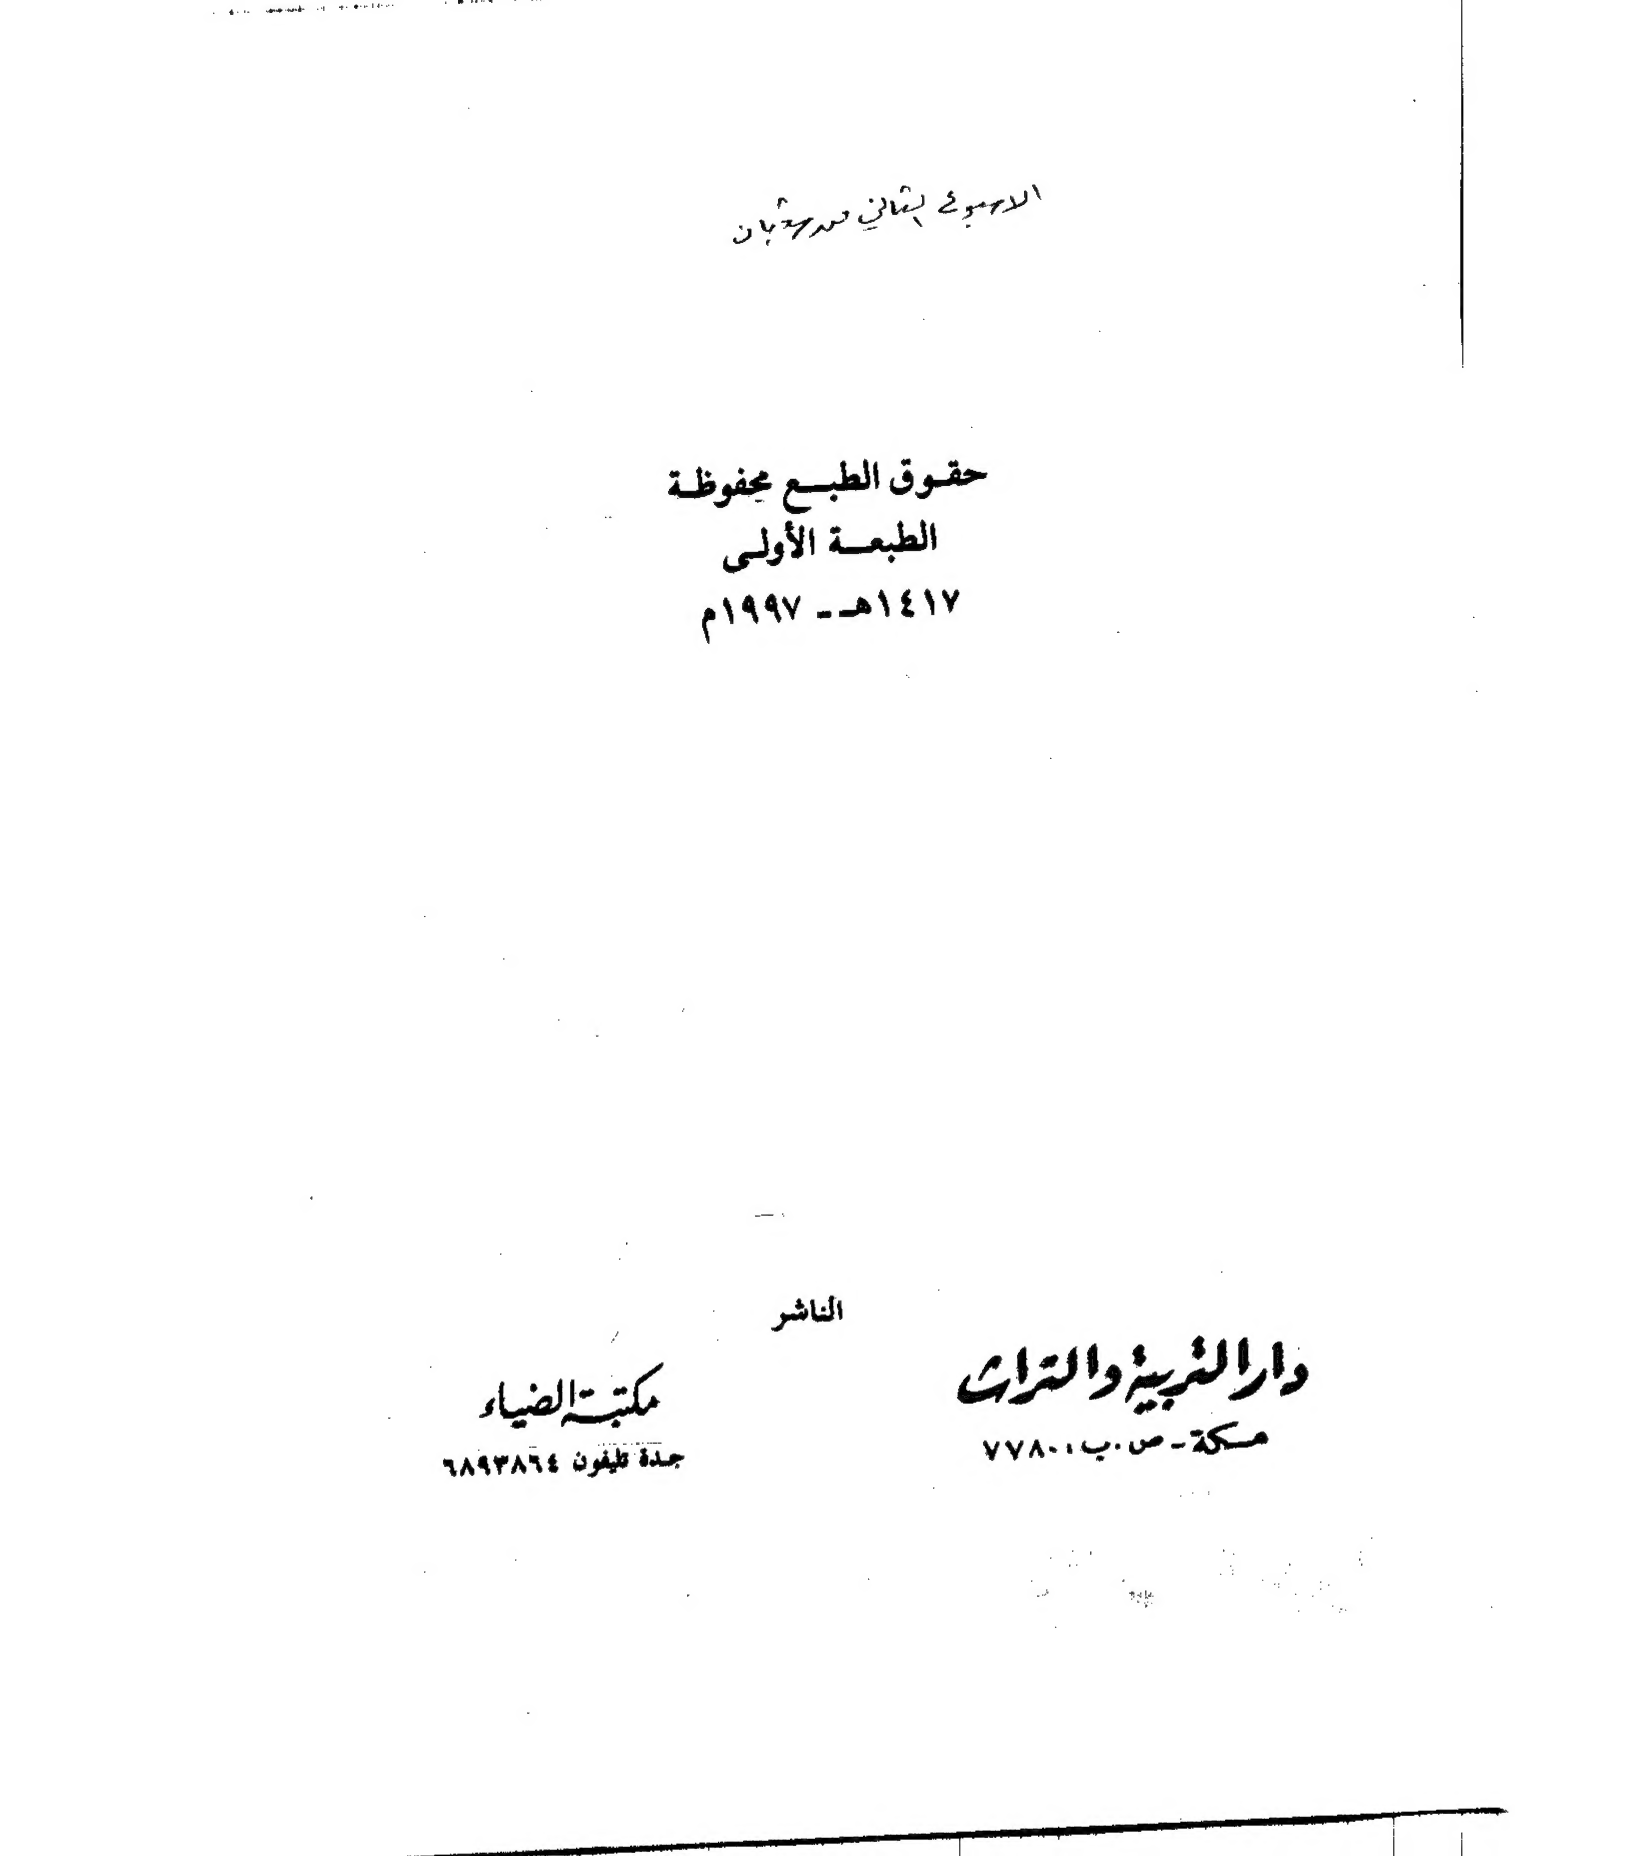 الاسبوع الثاني من شعبان
حقوق الطبع محفوظة
الطبعة الأولى
١٤١٧هـ - ١٩٩٧م
الناشر
دار التربية والتراث
مكة - ص.ب: ٧٧٨٠
مكتبة الضياء
جدة تليفون ٦٨٩٣٨٦٤